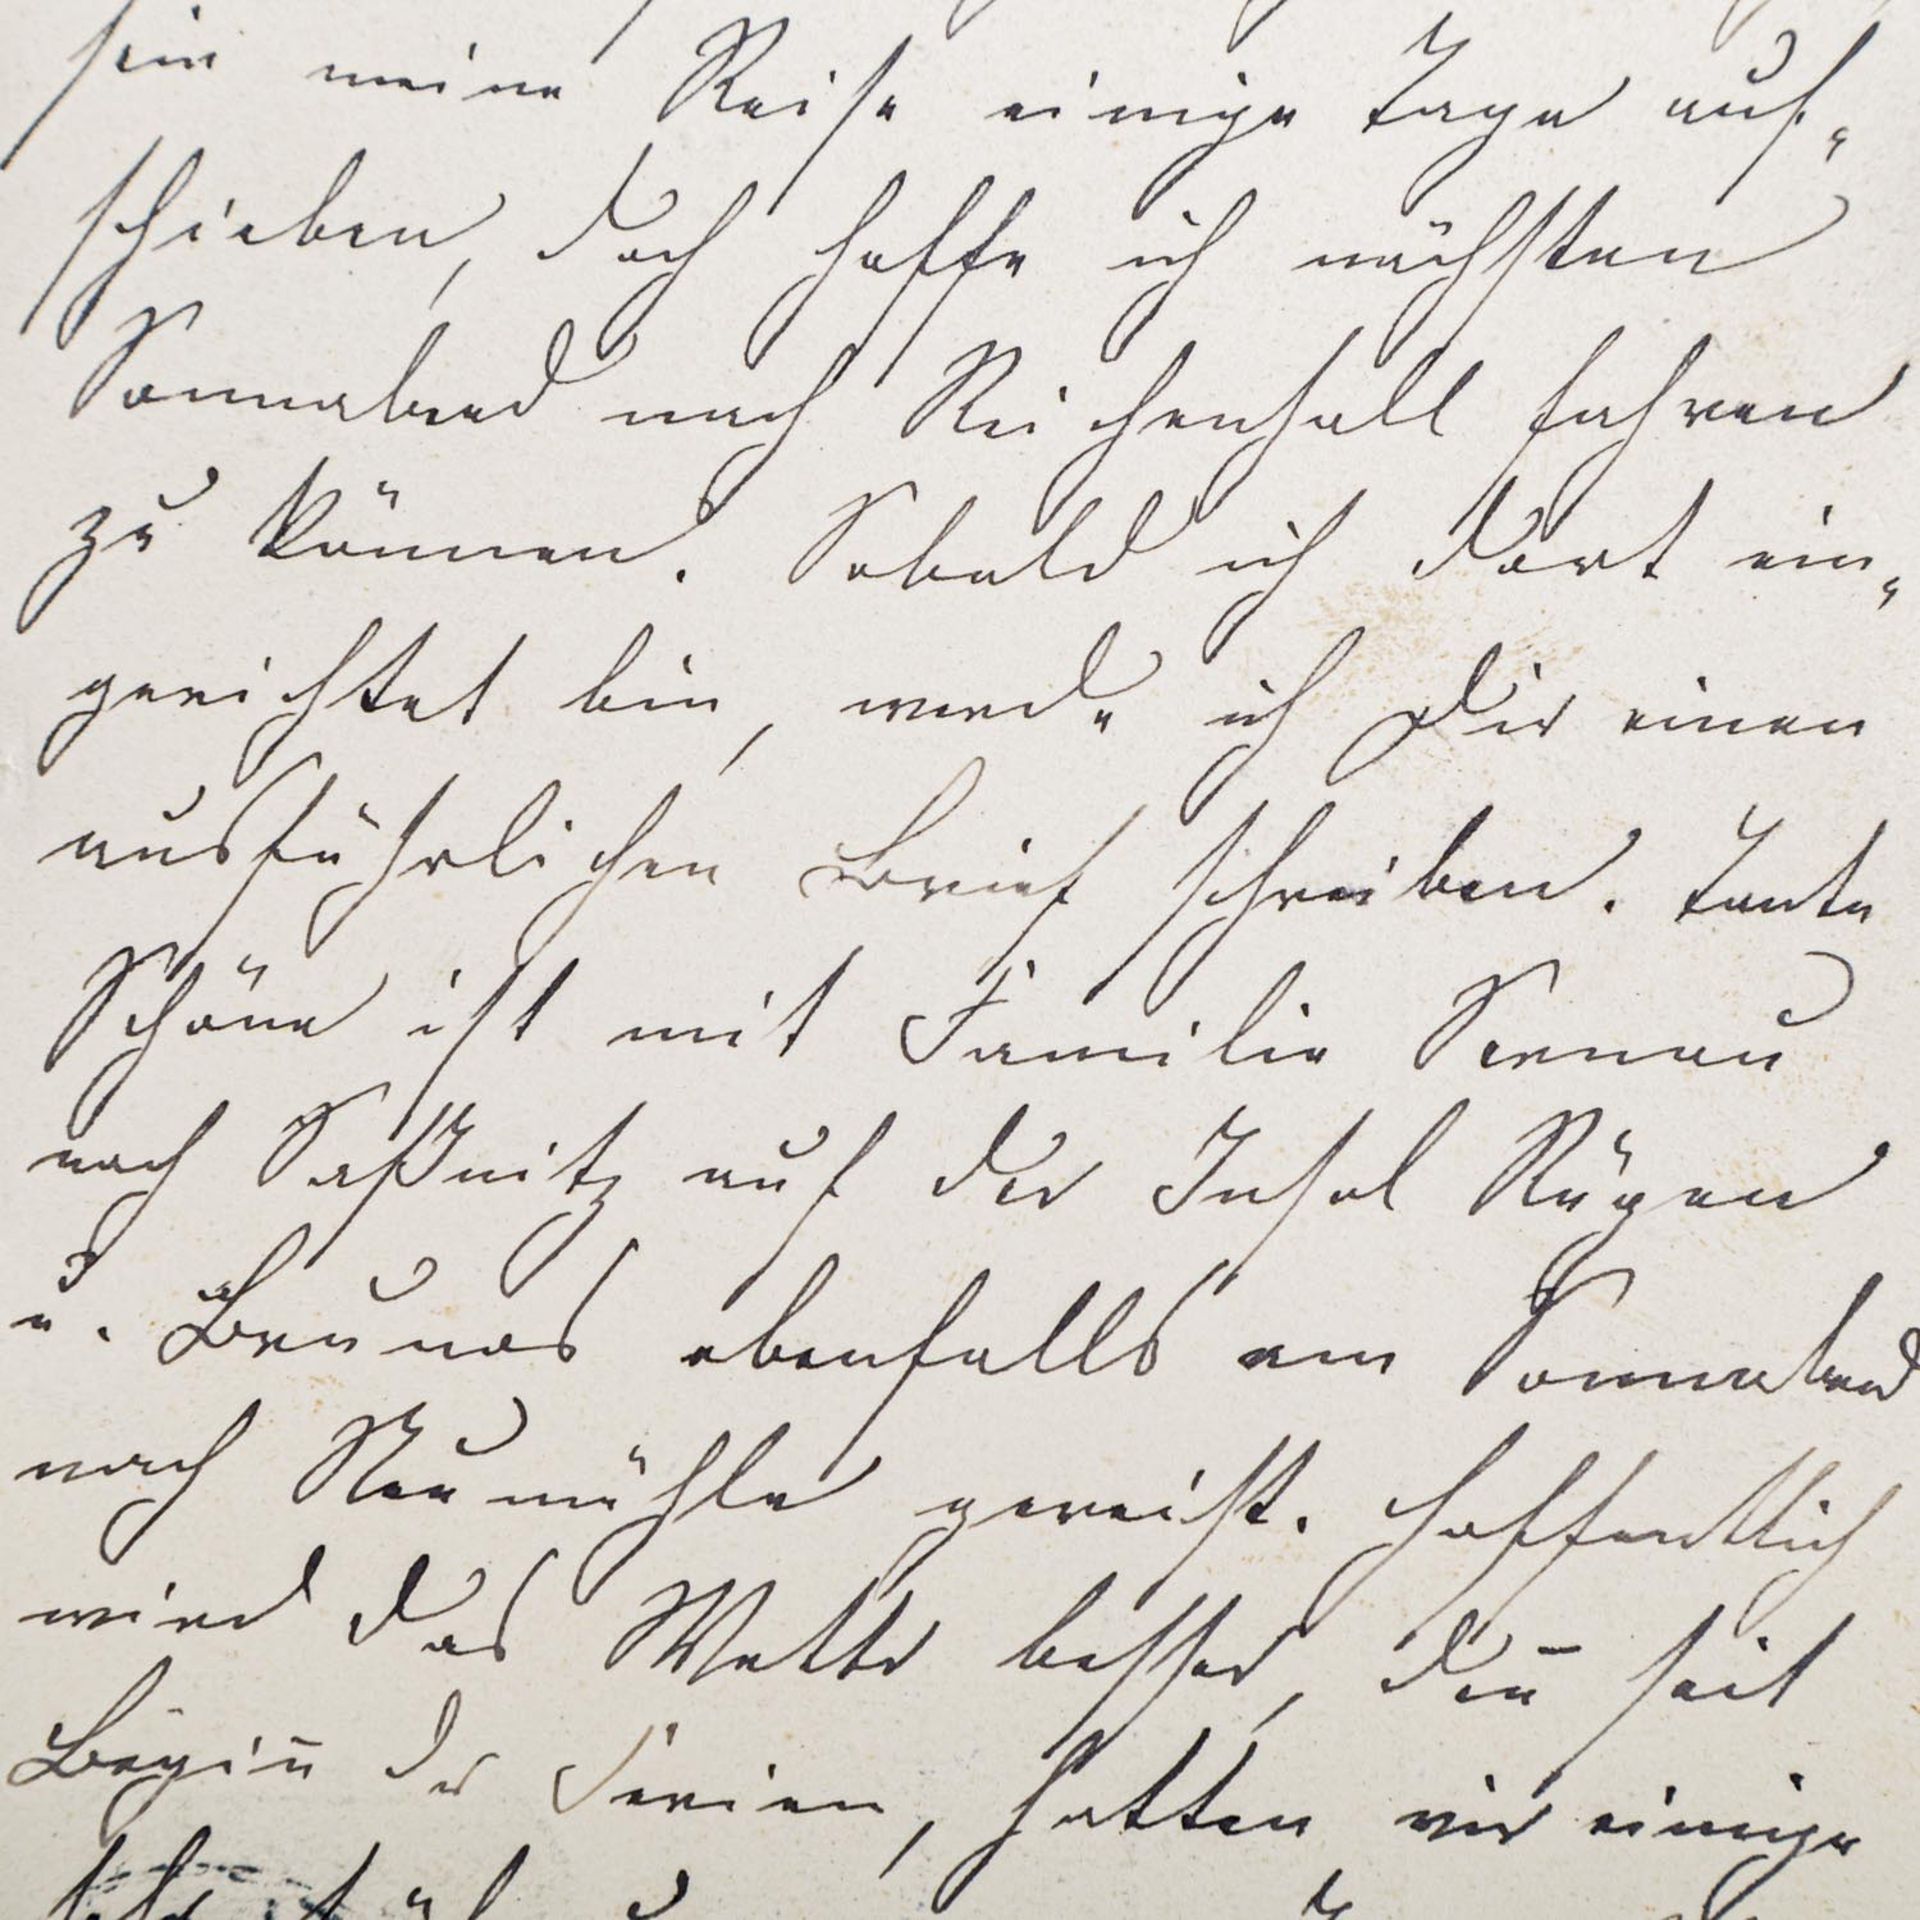 sein meine Reise einige Tage auf-
schieben, doch hoffe ich nächsten
Sonnabend nach Reichenhall fahren
zu können. Sobald ich dort ein-
gerichtet bin, werde ich Dir einen
ausführlichen Brief schreiben. Tante
Schöne ist mit Familie
nach Saßnitz auf der Insel Rügen
u. Brunos ebenfalls am Sonnabend
nach Neumühle gereist. Hoffentlich
wird das Wetter besser, den̅ seit
Begin̅ der Ferien, hatten wir einige